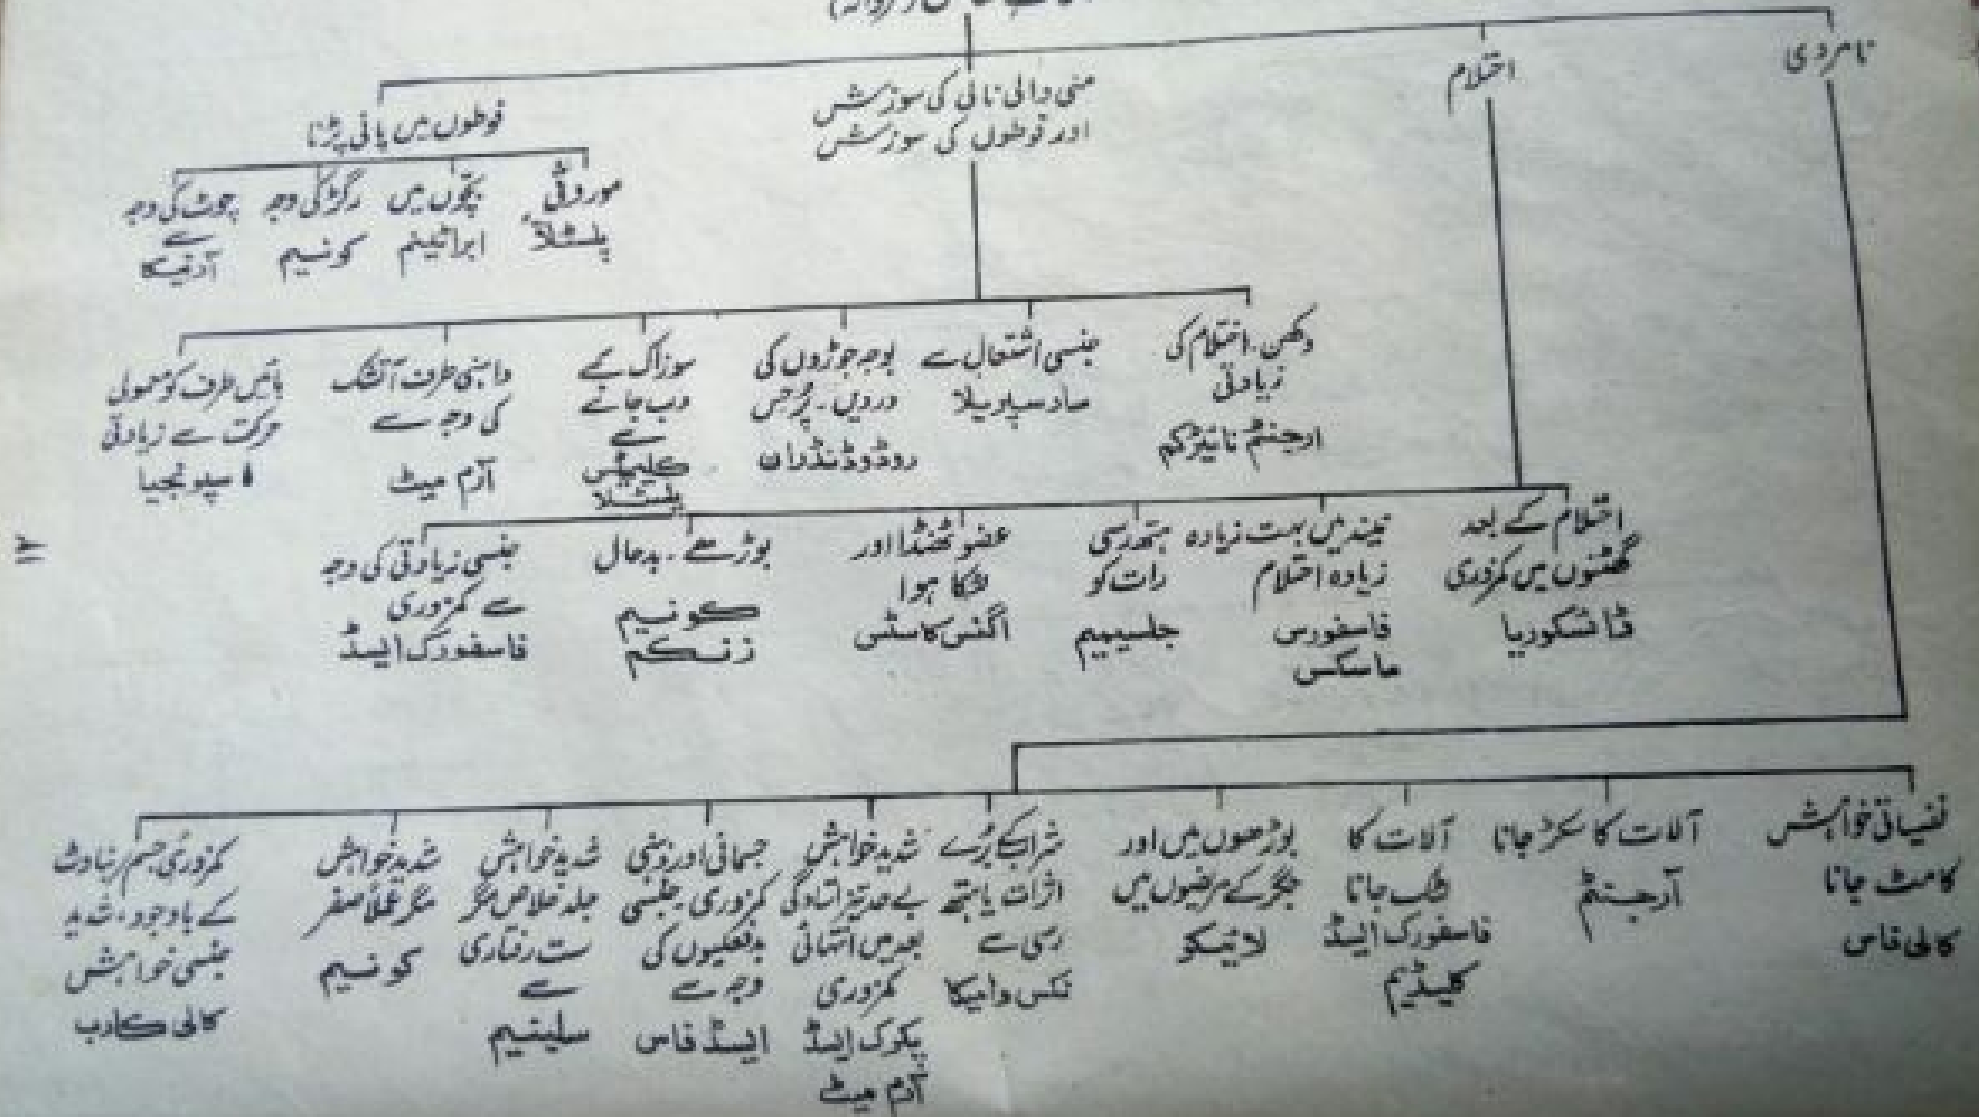 نامردی
احتلام
منی والی نالی کی سوزش
اور فوطوں کی سوزش
فوطوں میں پانی پڑنا
موروثی
پلسٹلا
بچوں میں
ابراٹینم
رگڑ کی وجہ
کونیم
چوٹ کی وجہ
سے
آرنیکا
دکھن ۔ احتلام کی
زیادتی
ارجنٹم نائیٹرکم
جنسی اشتعال سے
سارسپلریلا
بوجہ جوڑوں کی
دردیں ۔
روڈوڈنڈران
سوزاک کے
دب جانے
سے
کلیمٹس
پلسٹلا
داہنی طرف آتشک
کی وجہ سے
آرم میٹ
بائیں طرف کو معمولی
حرکت سے زیادتی
اسپونجیا
احتلام کے بعد
گھٹنوں میں کمزوری
ڈائسکوریا
نیند میں بہت زیادہ
زیادہ احتلام
فاسفورس
ماسکس
ہتھ رسی
رات کو
جلسیمیم
عضو ٹھنڈا اور
لٹکا ہوا
اگنس کاسٹس
بوڑھے ۔ بدحال
کونیم
زنکم
جنسی زیادتی کی وجہ
سے کمزوری
فاسفورک ایسڈ
۱۲
نفسیاتی خواہش
کا مٹ جانا
کالی فاس
آلات کا سکڑ جانا
آرجنٹم
آلات کا
لٹک جانا
فاسفورک ایسڈ
کلیڈیم
بوڑھوں میں اور
جگر کے مریضوں میں
لائیکو
شراب کے بُرے
اثرات یا ہتھ
رسی سے
نکس وامیکا
شدید خواہش
بے حد تیز استادگی
بعد میں انتہائی
کمزوری
پکرک ایسڈ
آرم میٹ
جسمانی اور ذہنی
کمزوری ۔ جنسی
بدفعلیوں کی
وجہ سے
ایسڈ فاس
شدید خواہش
جلد خلاص مگر
ست رفتاری
سے
سلینیم
شدید خواہش
مگر عملاً صفر
کونیم
کمزوری جسم بناوٹ
کے باوجود ، شدید
جنسی خواہش
کالی کارب